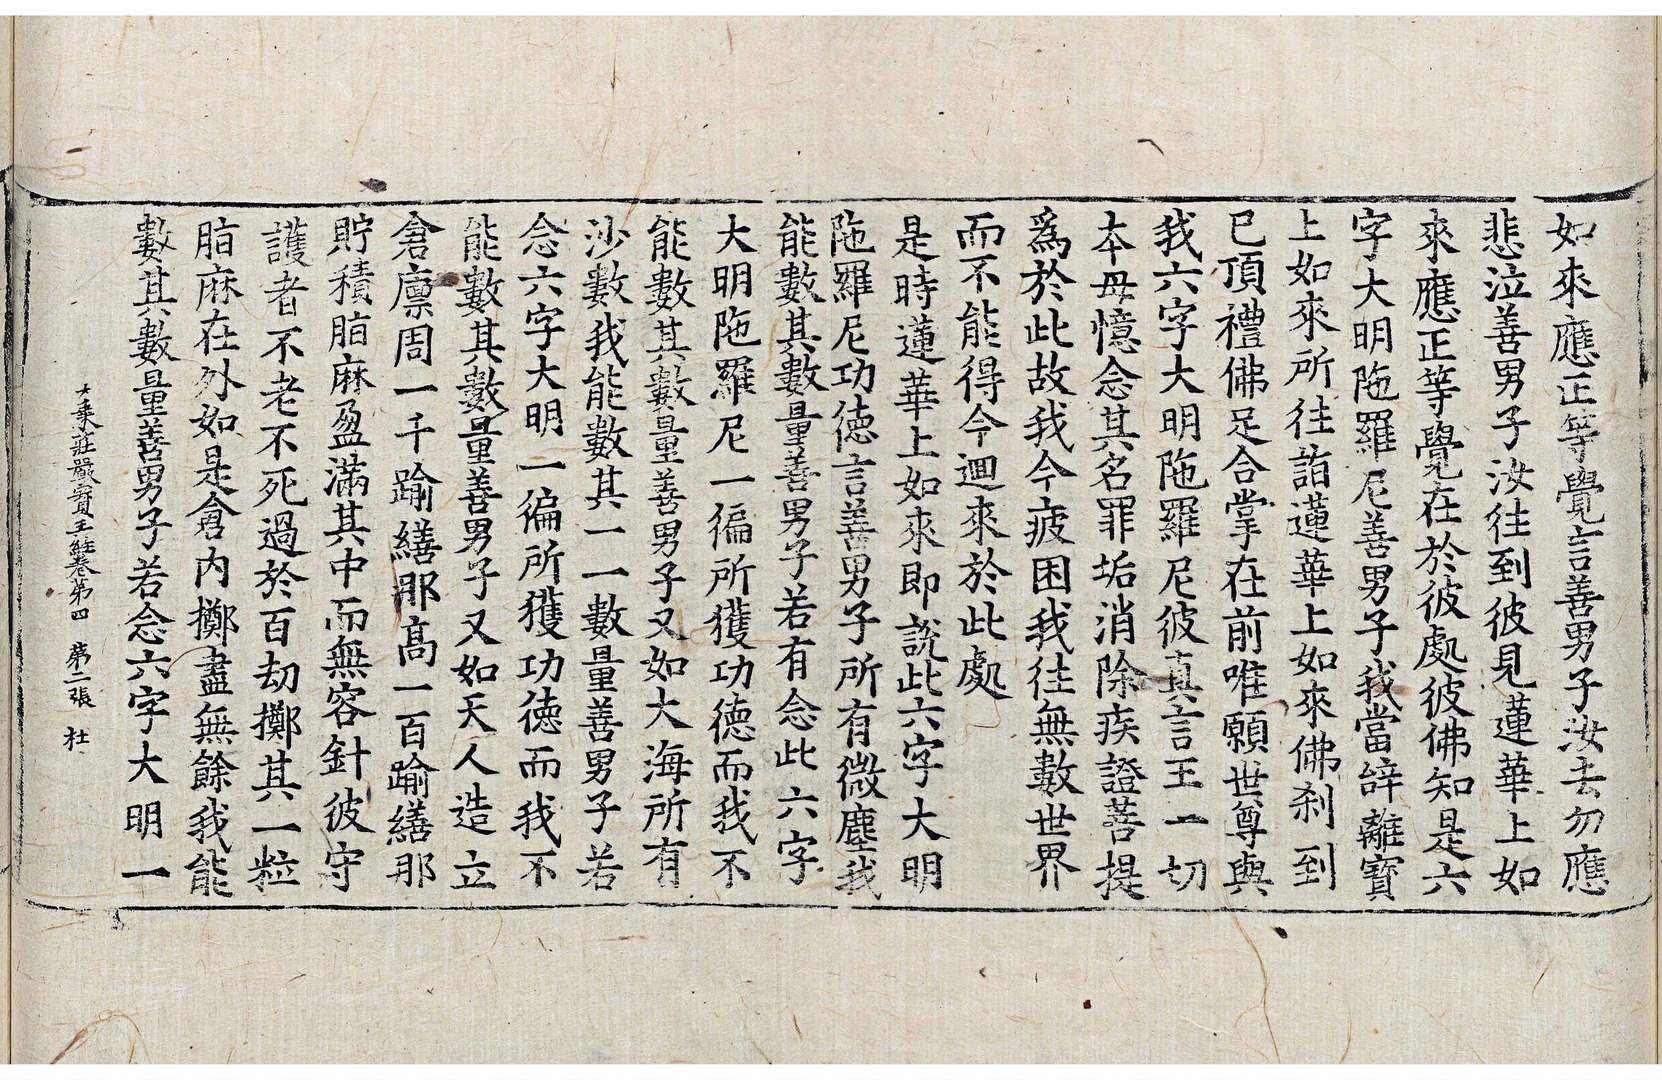 如來應正等覺言善男子汝去勿應
悲泣善男子汝往到彼見蓮華上如
來應正等覺在於彼處彼佛知是六
字大明陁羅尼善男子我當辝離寶
上如來所往詣蓮華上如來佛刹到
已頂禮佛足合掌在前唯願世尊與
我六字大明陁羅尼彼真言王一切
本母憶念其名罪垢消除疾證菩提
爲於此故我今疲困我往無數世界
而不能得今迴來於此處
是時蓮華上如來即說此六字大明
陁羅尼功德言善男子所有微塵我
能數其數量善男子若有念此六字
大明陁羅尼一徧所獲功德而我不
能數其數量善男子又如大海所有
沙數我能數其一一數量善男子若
念六字大明一徧所獲功德而我不
能數其數量善男子又如天人造立
倉廩周一千踰繕那高一百踰繕那
貯積脂麻盈滿其中而無容針彼守
護者不老不死過於百劫擲其一粒
脂麻在外如是倉內擲盡無餘我能
數其數量善男子若念六字大明一
大乘莊嚴寶王經卷第四 第二張 杜